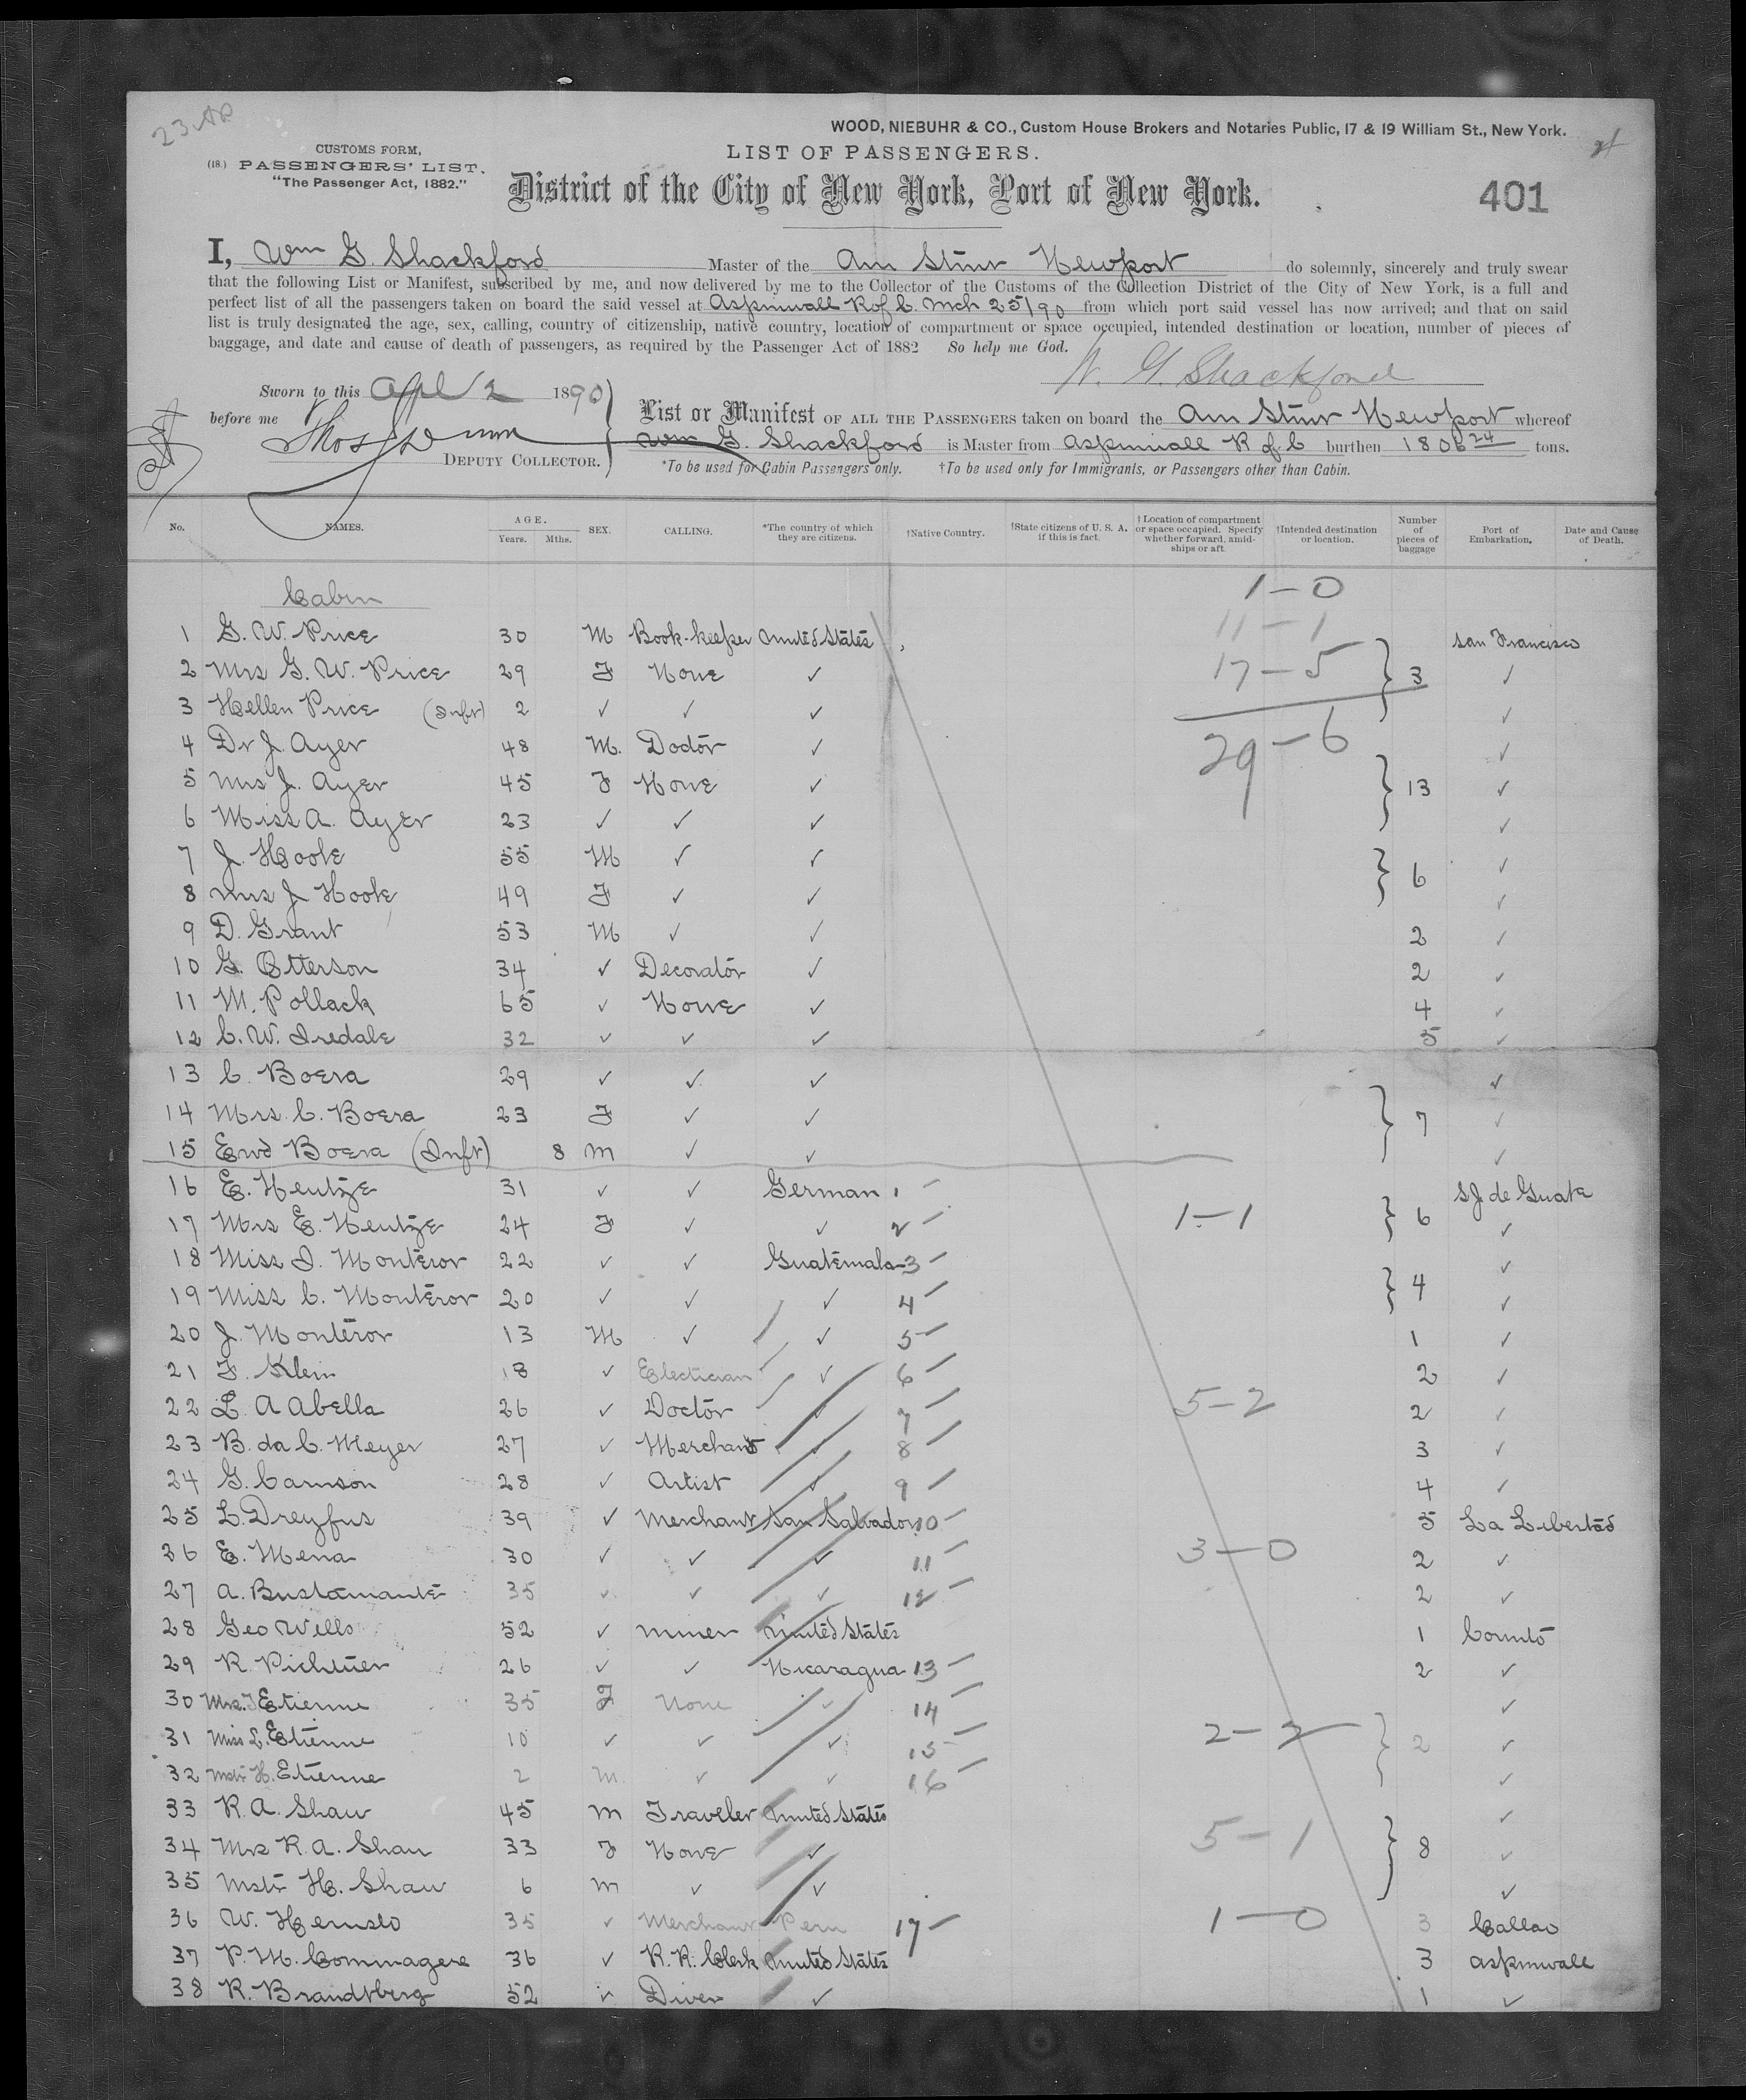 23
WOOD, NIEBUHR & CO., Custom House Brokers and Notaries Public, 17 & 19 William St., New York.
CUSTOMS FORM,
(18.) PASSENGERS' LIST.
"The Passenger Act, 1882."
LIST OF PASSENGERS.
District of the City of New York, Port of New York.
401
I, Wm G. Shackford Master of the Am Stmr Newport do solemnly, sincerely and truly swear
that the following List or Manifest, subscribed by me, and now delivered by me to the Collector of the Customs of the Collection District of the City of New York, is a full and
perfect list of all the passengers taken on board the said vessel at Aspinwall R of C. Mch 25/90 from which port said vessel has now arrived; and that on said
list is truly designated the age, sex, calling, country of citizenship, native country, location of compartment or space occupied, intended destination or location, number of pieces of
baggage, and date and cause of death of passengers, as required by the Passenger Act of 1882 So help me God.
W. G. Shackford
Sworn to this Apl 2 1890
before me
Thos Dunn
DEPUTY COLLECTOR.
List or Manifest OF ALL THE PASSENGERS taken on board the Am Stmr Newport whereof
Wm G. Shackford is Master from Aspinwall R of C burthen 1806 24 tons.
*To be used for Cabin Passengers only. †To be used only for Immigrants, or Passengers other than Cabin.
No. NAMES. AGE. Years. Mths. SEX. CALLING. *The country of which they are citizens. †Native Country. †State citizens of U. S. A. if this is fact. †Location of compartment or space occupied. Specify whether forward, amidships or aft. †Intended destination or location. Number of pieces of baggage Port of Embarkation. Date and Cause of Death.
Cabin 1-0
1 G. W. Price 30 M Book-keeper United States 11-1 San Francisco
2 Mrs G. W. Price 29 F None ✓ 17-5 3 ✓
3 Hellen Price (Inft) 2 ✓ ✓ ✓ ✓
4 Dr J. Ayer 48 M. Doctor ✓ 29-6 ✓
5 Mrs J. Ayer 45 F None ✓ 13 ✓
6 Miss A. Ayer 23 ✓ ✓ ✓ ✓
7 J. Hoole 55 M ✓ ✓ ✓
8 Mrs J Hoole 49 F ✓ ✓ 6 ✓
9 D. Grant 53 M ✓ ✓ 2 ✓
10 G. Otterson 34 ✓ Decorator ✓ 2 ✓
11 M. Pollack 65 ✓ None ✓ 4 ✓
12 C. W. Iredale 32 ✓ ✓ ✓ 5 ✓
13 C. Boera 29 ✓ ✓ ✓ ✓
14 Mrs. C. Boera 23 F ✓ ✓ 7 ✓
15 Ewd Boera (Inft) 8 M ✓ ✓ ✓
16 E. Hentze 31 ✓ ✓ German 1 SJ. de Guate
17 Mrs E. Hentze 24 F ✓ ✓ 2 1-1 6 ✓
18 Miss I. Monteror 22 ✓ ✓ Guatemala 3 ✓
19 Miss C. Monteror 20 ✓ ✓ ✓ 4 4 ✓
20 J. Monteror 13 M ✓ ✓ 5 1 ✓
21 F. Klein 18 ✓ Electician ✓ 6 2 ✓
22 L. A Abella 26 ✓ Doctor ✓ 7 5-2 2 ✓
23 B. da C. Meyer 27 ✓ Merchant ✓ 8 3 ✓
24 G. Carnson 28 ✓ Artist ✓ 9 4 ✓
25 L. Dreyfus 39 ✓ Merchant San Salvador 10 5 La Libertad
26 E. Mena 30 ✓ ✓ ✓ 11 3-0 2 ✓
27 A. Bustamante 35 ✓ ✓ ✓ 12 2 ✓
28 Geo Wells 52 ✓ Miner United States 1 Corinto
29 R. Pichtuer 26 ✓ ✓ Nicaragua 13 2 ✓
30 Mrs. J Etienne 35 F None ✓ 14 ✓
31 Miss L. Etienne 10 ✓ ✓ ✓ 15 2-2 2 ✓
32 Mstr H. Etienne 2 M ✓ ✓ 16 ✓
33 R. A. Shaw 45 M Traveler United States ✓
34 Mrs R. A. Shaw 33 F None ✓ 5-1 8 ✓
35 Mstr H. Shaw 6 M ✓ ✓ ✓
36 W. Hernsto 35 ✓ Merchant Peru 17 1-0 3 Callao
37 P. M. Commagere 36 ✓ R. R. Clerk United States 3 Aspinwall
38 R. Brandtberg 52 ✓ Diver ✓ 1 ✓